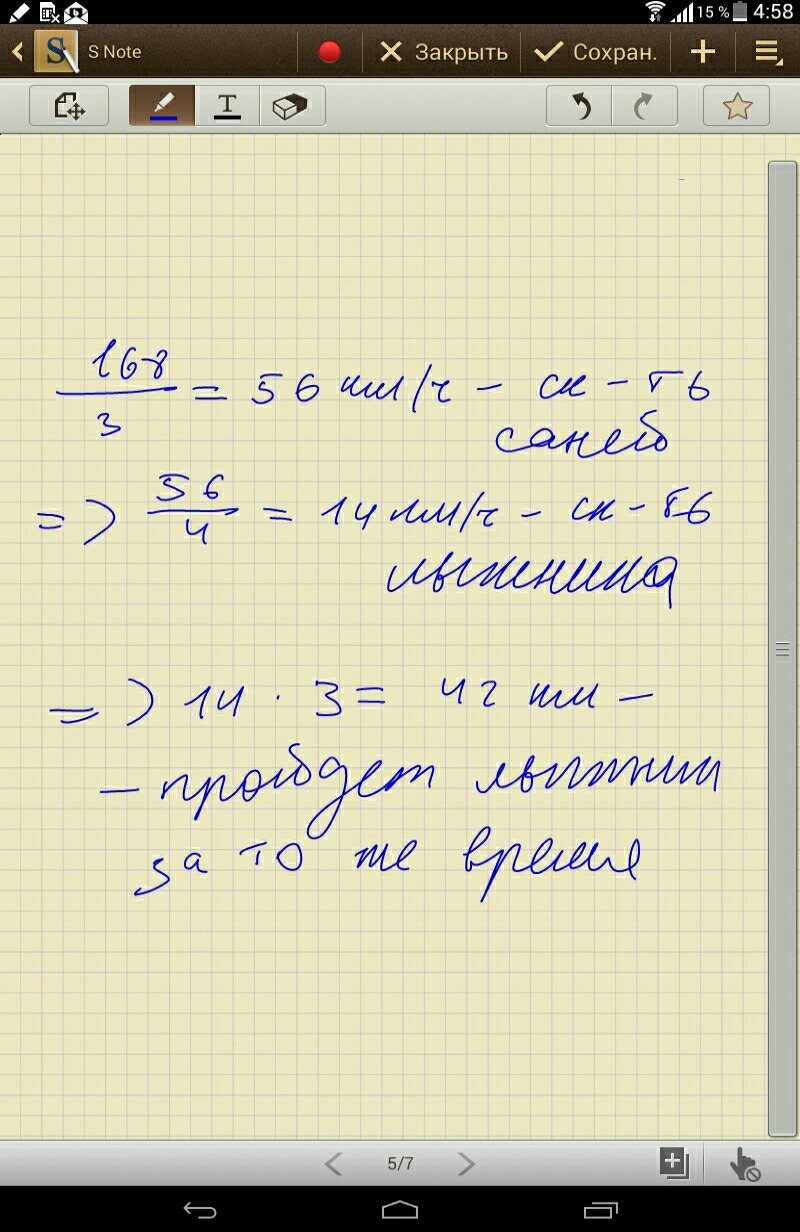 15 % 4:58
S Note Закрыть Сохран.
T
168/3 = 56 км/ч – ск-ть
саней
=> 56/4 = 14 км/ч – ск-ть
лыжника
=> 14 · 3 = 42 км –
– пройдет лыжник
за то же время
5/7